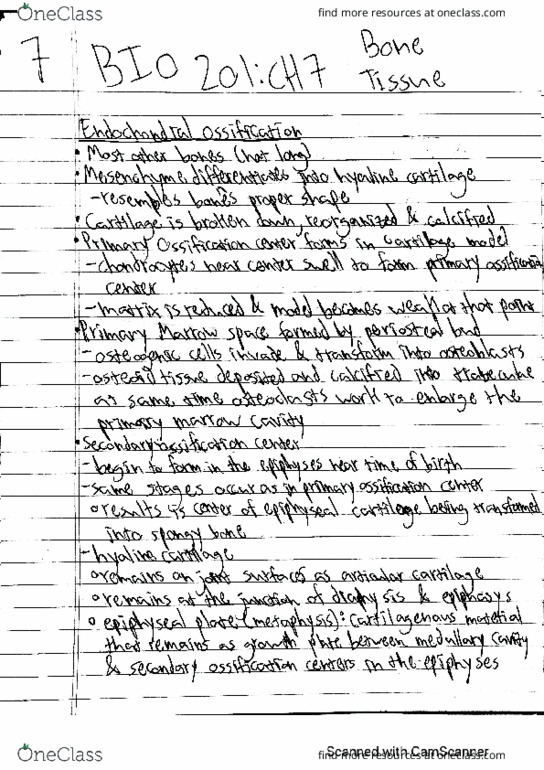 OneClass
find more resources at oneclass.com
7 BIO 201: CH7 Bone
Tissue
Endochondral Ossification
• Most other bones (not long)
• Mesenchyme differentiates into hyaline cartilage
- resembles bones proper shape
• Cartilage is broken down, reorganized & calcified
• Primary Ossification center forms in cartilage model
- chondrocytes near center swell to form primary ossification
center
- matrix is reduced & model becomes weak at that point
• Primary Marrow space formed by periosteal bud
- osteogenic cells invade & transform into osteoblasts
- osteoid tissue deposited and calcified into trabeculae
at same time osteoclasts work to enlarge the
primary marrow cavity
• Secondary ossification center
- begin to form in the epiphyses near time of birth
- same stages occur as in primary ossification center
o results is center of epiphyseal cartilage being transformed
into spongy bone
- hyaline cartilage
o remains on joint surfaces as articular cartilage
o remains at the junction of diaphysis &
o epiphyseal plate (metaphysis): cartilagenous material
that remains as growth plate between medullary cavity
& secondary ossification centers in the epiphyses
OneClass
Scanned with CamScanner
find more resources at oneclass.com